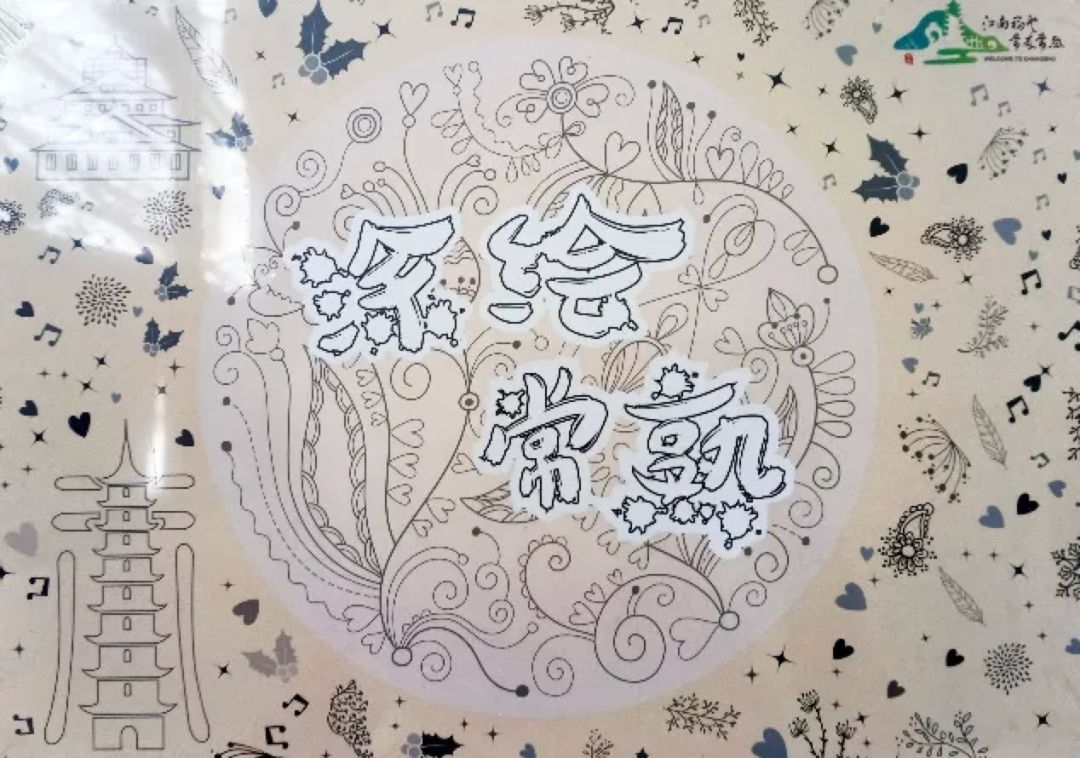 涂绘
常熟
江南福地
常来常熟
WELCOME TO CHANGSHU